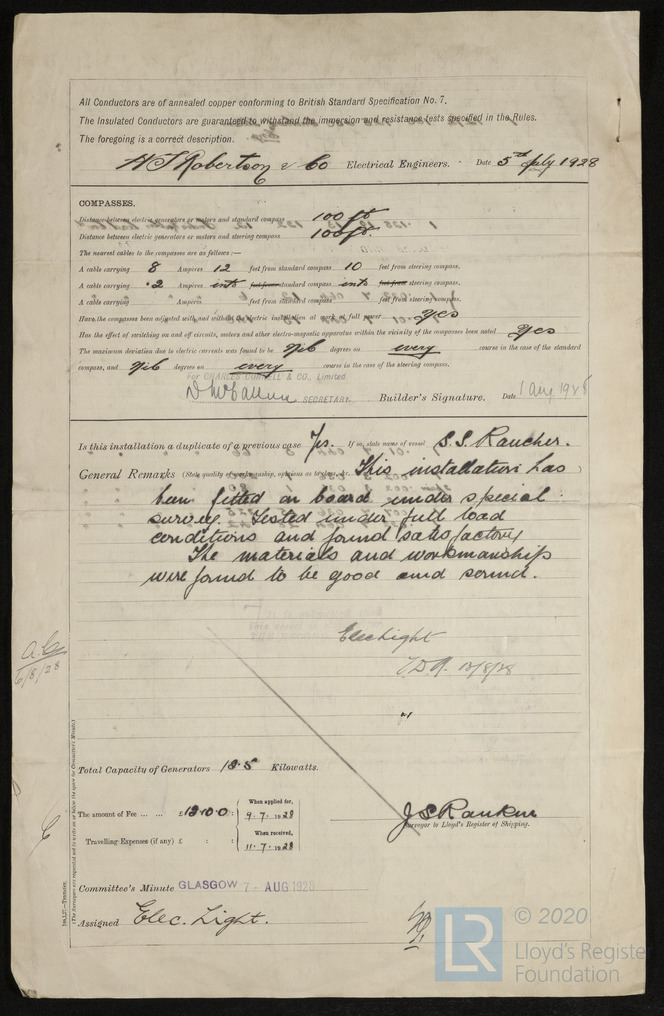 All Conductors are of annealed copper conforming to British Standard Specification No. 7.
The Insulated Conductors are guaranteed to withstand the immersion and resistance tests specified in the Rules.
The foregoing is a correct description.
Robertson & Co Electrical Engineers. Date 5th July 1928
COMPASSES.
Distance between electric generators or motors and standard compass 100 ft
Distance between electric generators or motors and steering compass 100 ft.
The nearest cables to the compasses are as follows:—
A cable carrying 8 Ampères 12 feet from standard compass 10 feet from steering compass.
A cable carrying .2 Ampères into feet from standard compass into feet from steering compass.
A cable carrying Ampères feet from standard compass feet from steering compass.
Have the compasses been adjusted with and without the electric installation at work at full power Yes
Has the effect of switching on and off circuits, motors and other electro-magnetic apparatus within the vicinity of the compasses been noted Yes
The maximum deviation due to electric currents was found to be Nil degrees on every course in the case of the standard
compass, and Nil degrees on every course in the case of the steering compass.
For CHARLES CONNELL & CO., Limited
SECRETARY. Builder's Signature. Date 1 Aug 1928
Is this installation a duplicate of a previous case Yes. If so, state name of vessel S.S. Rancher.
General Remarks (State quality of workmanship, opinions as to class, etc. This installation has
been fitted on board under special
survey. Tested under full load
conditions and found satisfactory
The materials and workmanship
were found to be good and sound.
Elec Light
6/8/28
Total Capacity of Generators 18.5 Kilowatts.
The amount of Fee ... ... £ : : When applied for, 9.7.1928
Travelling Expenses (if any) £ : : When received, 11.7.1928
J S Rankin
Surveyor to Lloyd's Register of Shipping.
Committee's Minute GLASGOW 7 - AUG 1928
Assigned Elec. Light.
(The Surveyors are requested not to write on or below the space for Committee's Minute.)
LR © 2020
Lloyd's Register
Foundation